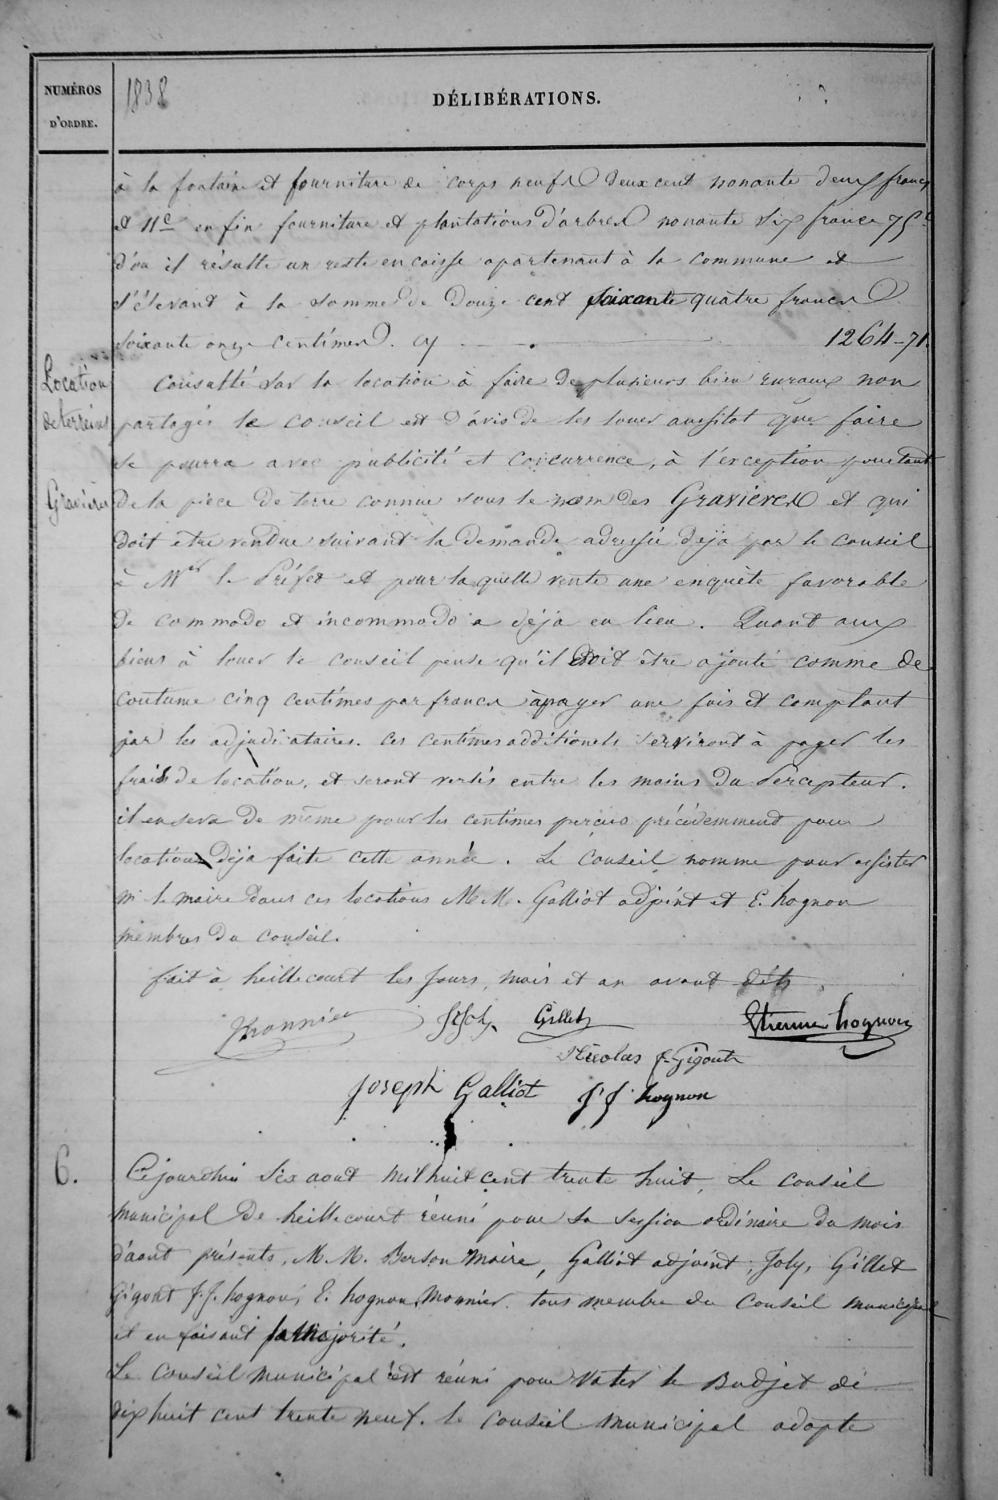 NUMÉROS
D'ORDRE.
1838
DÉLIBÉRATIONS.
à la fontaine et fourniture de corps neufs deux cent nonante deux francs
et 11c enfin fourniture et plantations d'arbres nonante six francs 75c
d'ou il résulte un reste en caisse apartenant à la commune et
s'élevant à la somme de douze cent soixante quatre francs
soixante onze centimes. cy 1264-71.
Location
de terreins
Gravières
Consulté sur la location à faire de plusieurs bien ruraux non
partagés le conseil est d'avis de les louer aussitot que faire
se pourra avec publicité et concurrence, à l'exception pourtant
de la pièce de terre connue sous le nom des Gravieres et qui
doit être vendue suivant la demande adressée deja par le conseil
à Mr le Préfet et pour laquelle vente une enquête favorable
de commodo et incommodo a déja eu lieu. Quant aux
biens à louer le conseil pense qu'il doit être ajouté comme de
coutume cinq centimes par francs à payer une fois et comptant
par les adjudicataires. ces centimes additionels serviront à payer les
frais de location, et seront versés entre les mains du Percepteur.
il en sera de même pour les centimes perçus précédemment pour
location déja faite cette année. Le Conseil nomme pour assister
mr le maire dans ces locations M.M. Galliot adjoint et E. hognon
membres du conseil.
fait à heillecourt les jours, mois et an avant dits.
JMonnier JJoly Gillet Etienne hognon
Nicolas F. Gigout
Joseph Galliot J J hognon
6.
Cejourdhui six aout mil huit cent trente huit, Le conseil
municipal de heillecourt réuni pour sa session ordinaire du mois
d'aout présents, M.M. Berson Maire, Galliot adjoint, Joly, Gillet
Gigout J.J. hognon, E. hognon, Monnier. tous membre du Conseil municipal
et en faisant la majorité.
Le Conseil municipal est réuni pour voter le Budjet de
dix huit cent trente neuf. le conseil municipal adopte